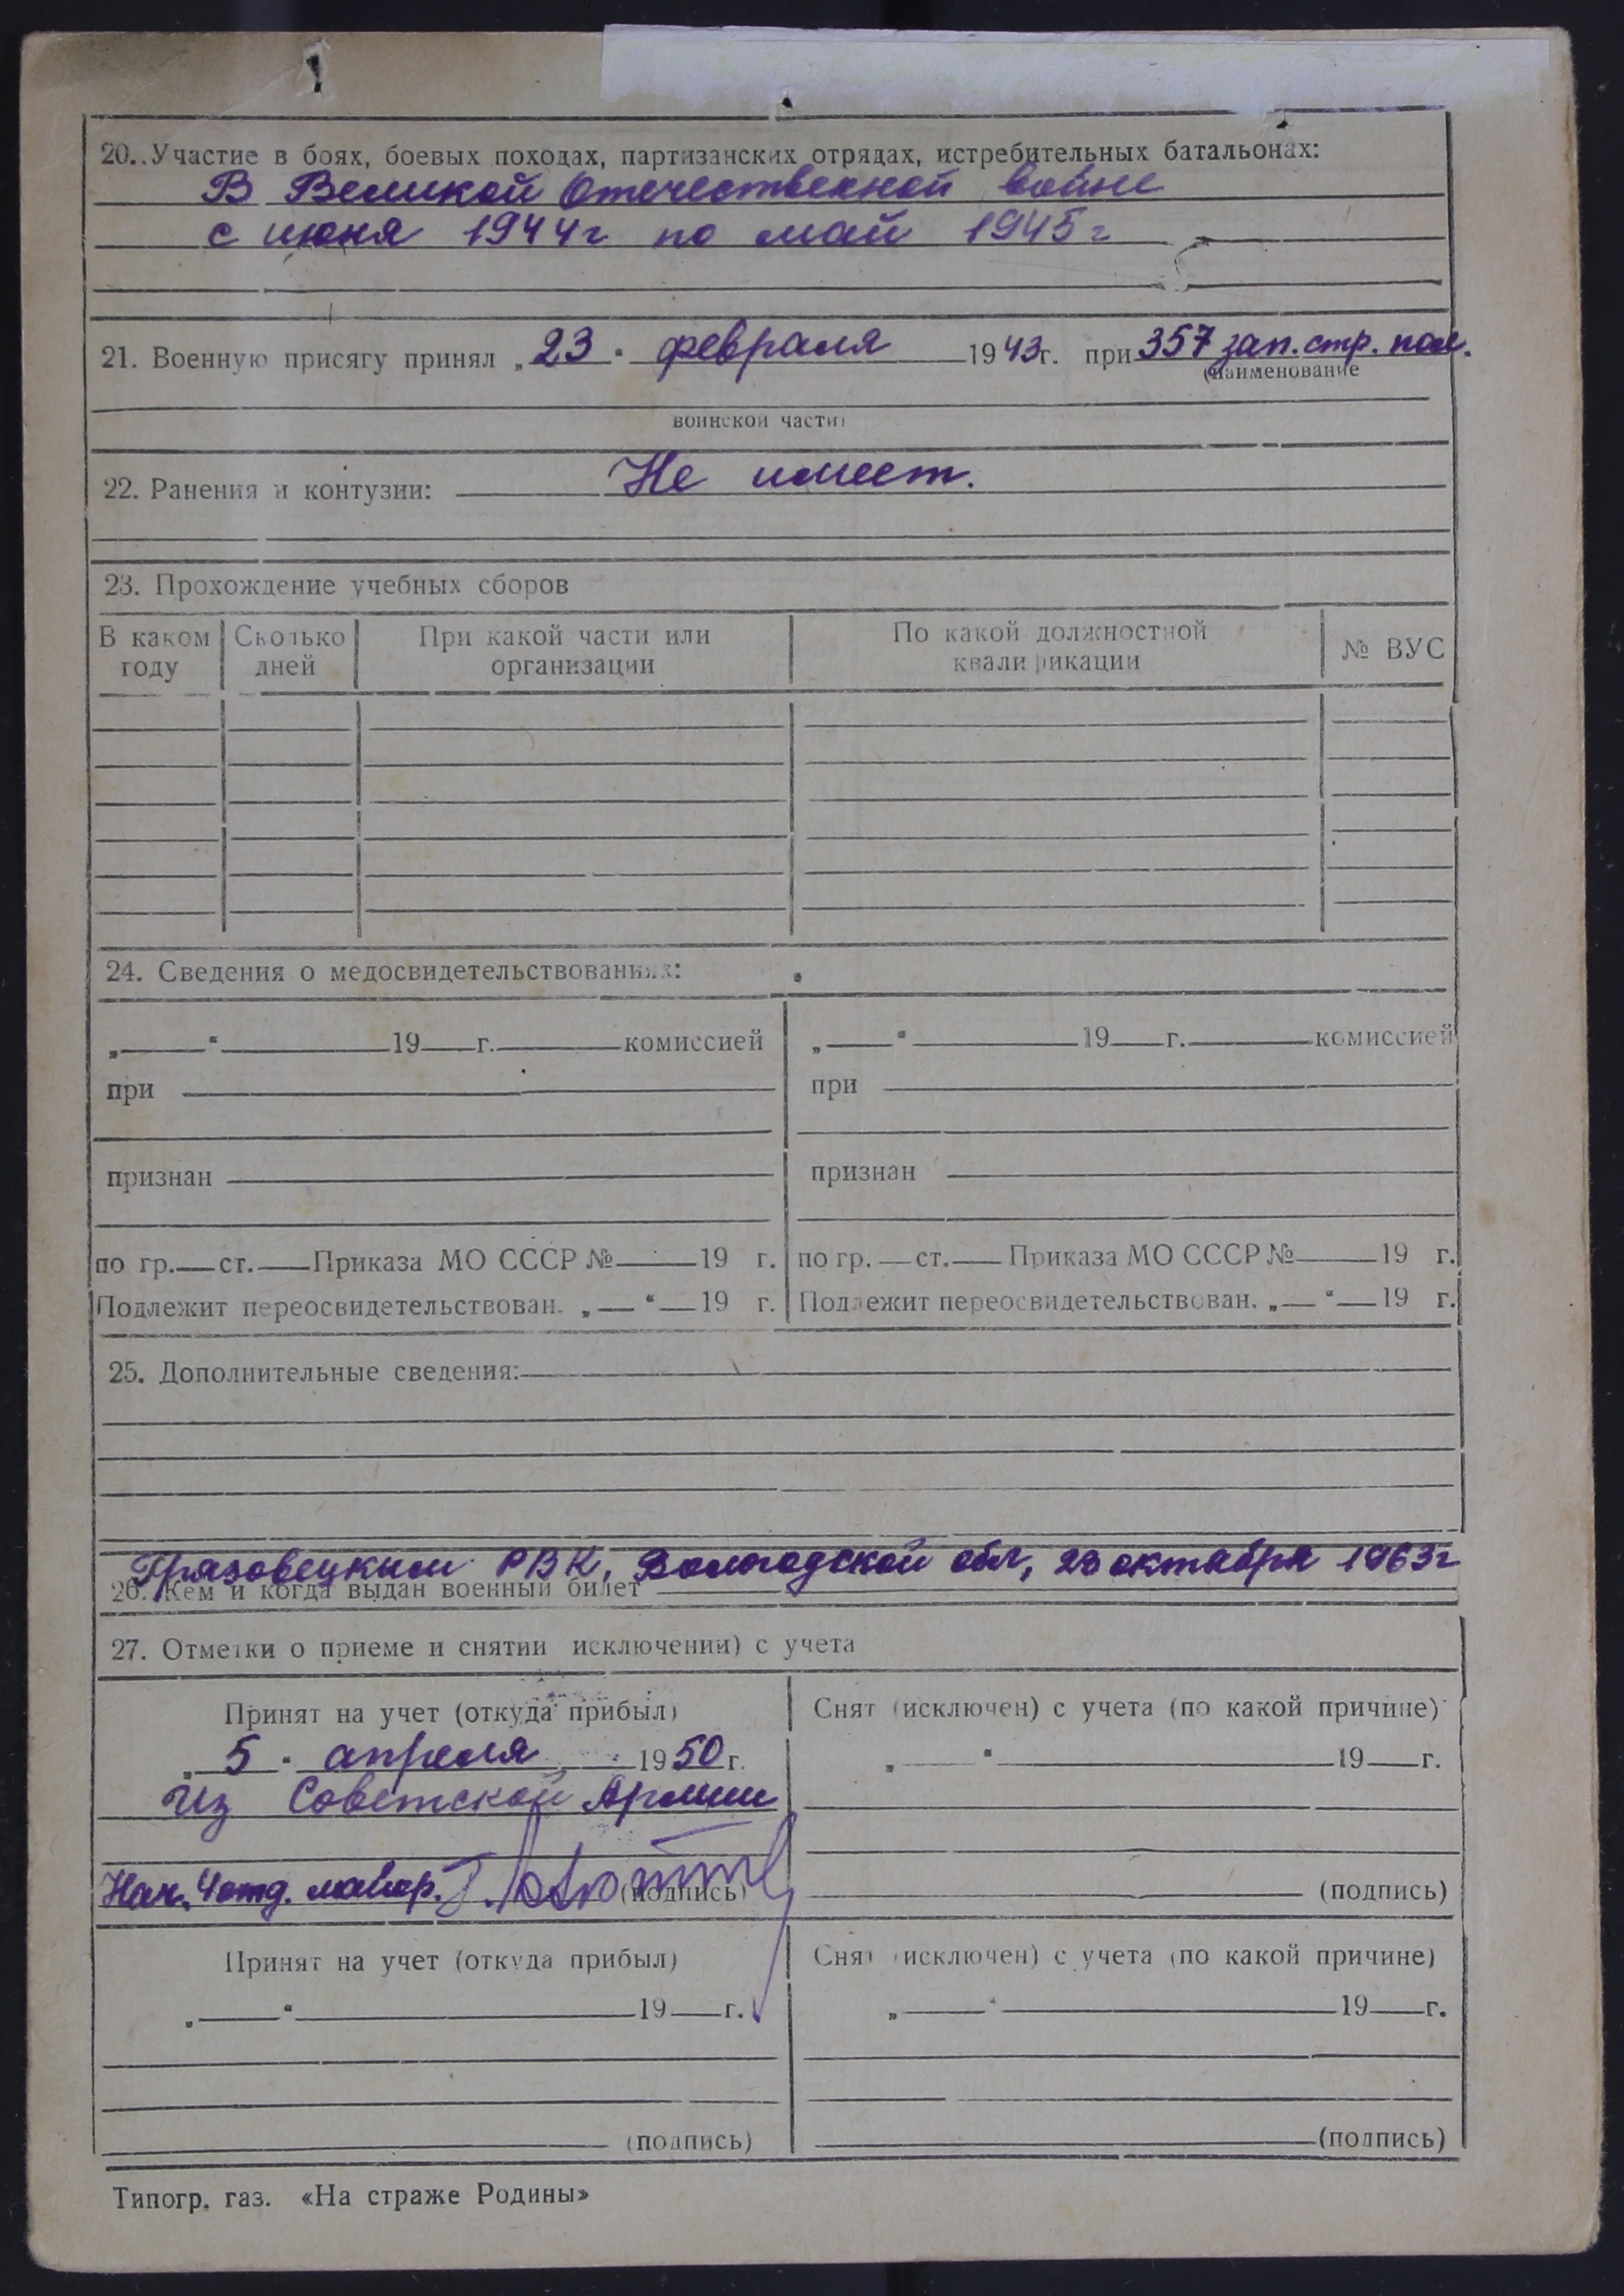 20. Участие в боях, боевых походах, партизанских отрядах, истребительных батальонах:
В Великой Отечественной войне
с июня 1944г по май 1945г
21. Военную присягу принял „23" февраля 1943г. при 357 зап. стр. пол.
(наименование
воинской части)
22. Ранения и контузии: Не имеет.
23. Прохождение учебных сборов
В каком году Сколько дней При какой части или организации По какой должностной квалификации № ВУС
24. Сведения о медосвидетельствованиях:
„ " 19 г. комиссией „ " 19 г. комиссией
при при
признан признан
по гр. ст. Приказа МО СССР № 19 г. по гр. ст. Приказа МО СССР № 19 г.
Подлежит переосвидетельствован. „ " 19 г. Подлежит переосвидетельствован. „ " 19 г.
25. Дополнительные сведения:
Грязовецким РВК, Вологодской обл, 23 октября 1963г
26. Кем и когда выдан военный билет
27. Отметки о приеме и снятии исключении) с учета
Принят на учет (откуда прибыл) Снят (исключен) с учета (по какой причине)
„5" апреля 1950г. „ " 19 г.
из Советской Армии
Нач. 4 отд. майор. (подпись) (подпись)
Принят на учет (откуда прибыл) Снят (исключен) с учета (по какой причине)
„ " 19 г. „ " 19 г.
(подпись) (подпись)
Типогр. газ. «На страже Родины»